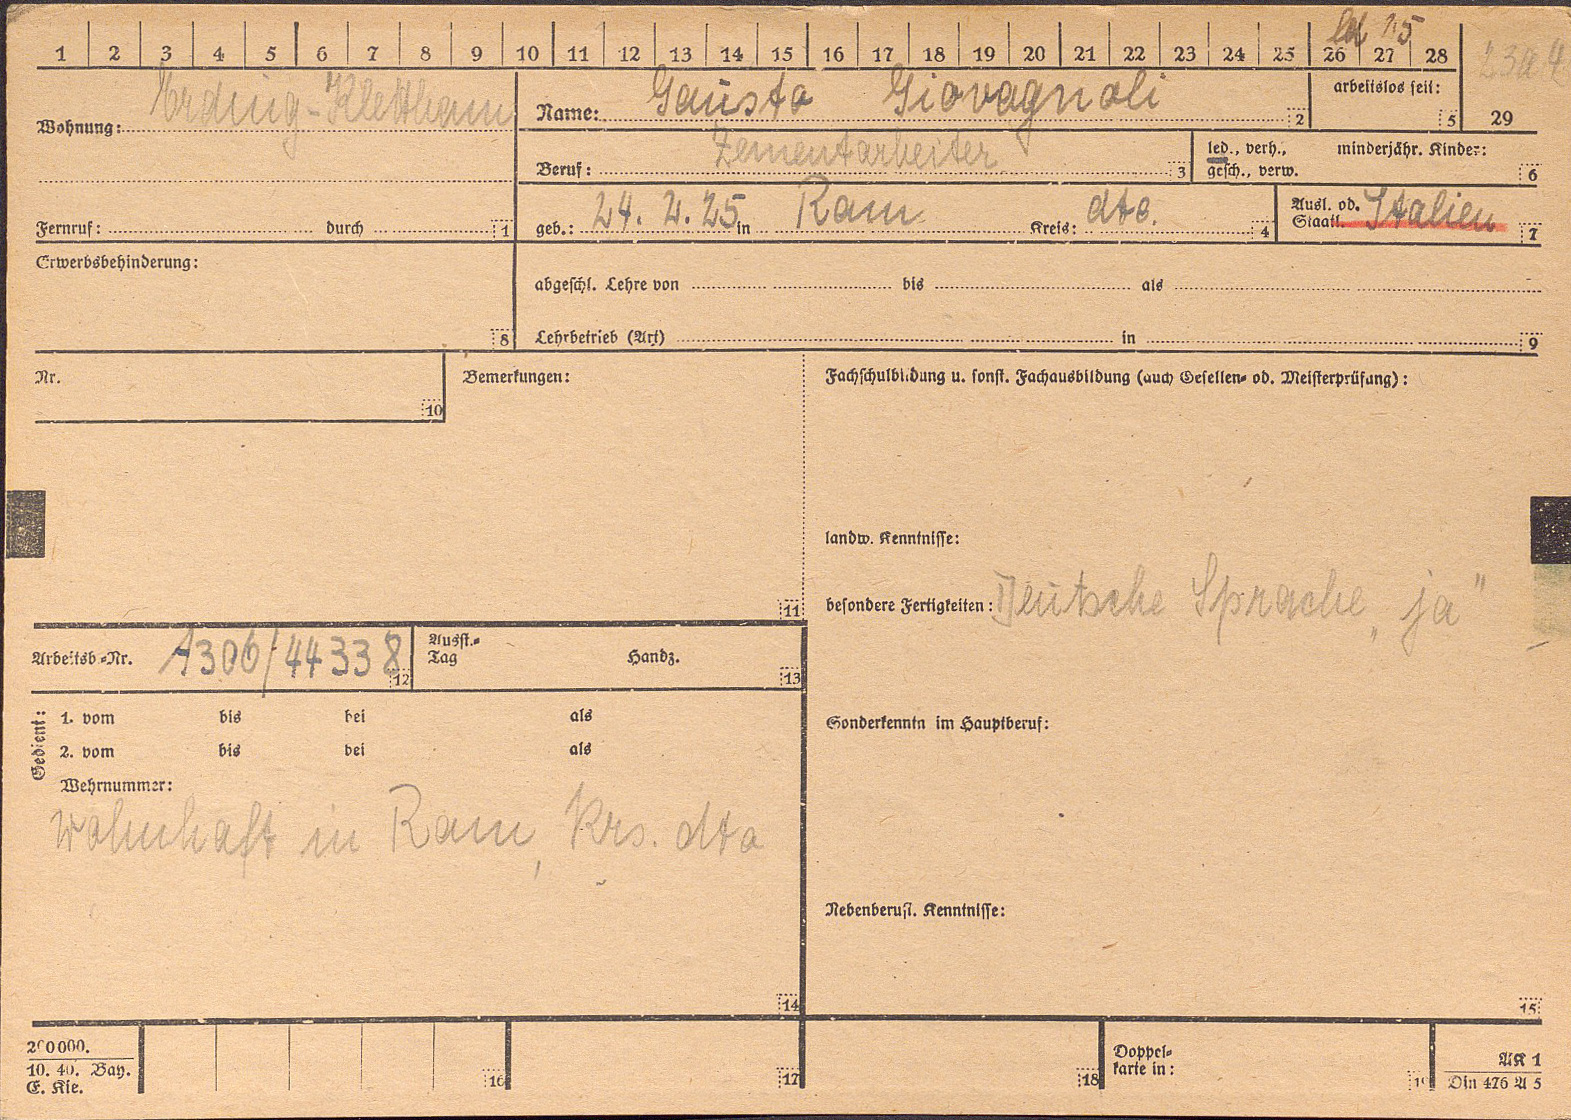 1 2 3 4 5 6 7 8 9 10 11 12 13 14 15 16 17 18 19 20 21 22 23 24 25 26 27 28 29
Wohnung: Erding-Klettham
Name: Gausto Giovagnoli 2
arbeitslos seit: 5
Beruf: Zementarbeiter 3
led., verh., gesch., verw.
minderjähr. Kinder: 6
Fernruf: durch 1
geb.: 24. 2. 25 in Ram Kreis: dto. 4
Ausl. od. Staatl. Italien 7
Erwerbsbehinderung: 8
abgeschl. Lehre von bis als
Lehrbetrieb (Art) in 9
Nr. 10
Bemerkungen: 11
Fachschulbildung u. sonst. Fachausbildung (auch Gesellen- od. Meisterprüfung):
landw. Kenntnisse:
besondere Fertigkeiten: Deutsche Sprache „ja"
Arbeitsb.-Nr. A306/44338 12
Ausst.-Tag Handz. 13
Gedient:
1. vom bis bei als
2. vom bis bei als
Wehrnummer:
wohnhaft in Ram, Krs. dto
14
Sonderkenntn im Hauptberuf:
Nebenberufl. Kenntnisse:
15
200000.
10. 40. Bay.
E. Kie.
16
17
18
Doppel-
karte in:
19
AK 1
Din 476 A 5